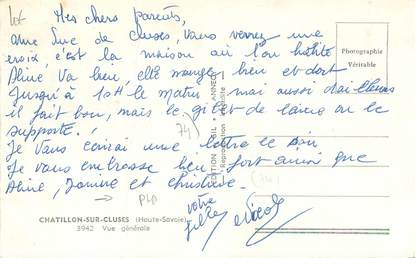 Mes chers parents,
une vue de cluses, vous verrez une
croix, c'est la maison où l'on habite
Aline va bien, elle mange bien et dort
jusqu'à 10H le matin, moi aussi d'ailleurs
il fait bon, mais le gilet de laine on le
supporte !
Je vous écrirai une lettre ce soir
Je vous embrasse bien fort ainsi que
Aline, et christiane.
votre
fille
Nicole
74
CHATILLON-SUR-CLUSES (Haute-Savoie)
3942 Vue générale
Photographie
Véritable
Reproduction interdite